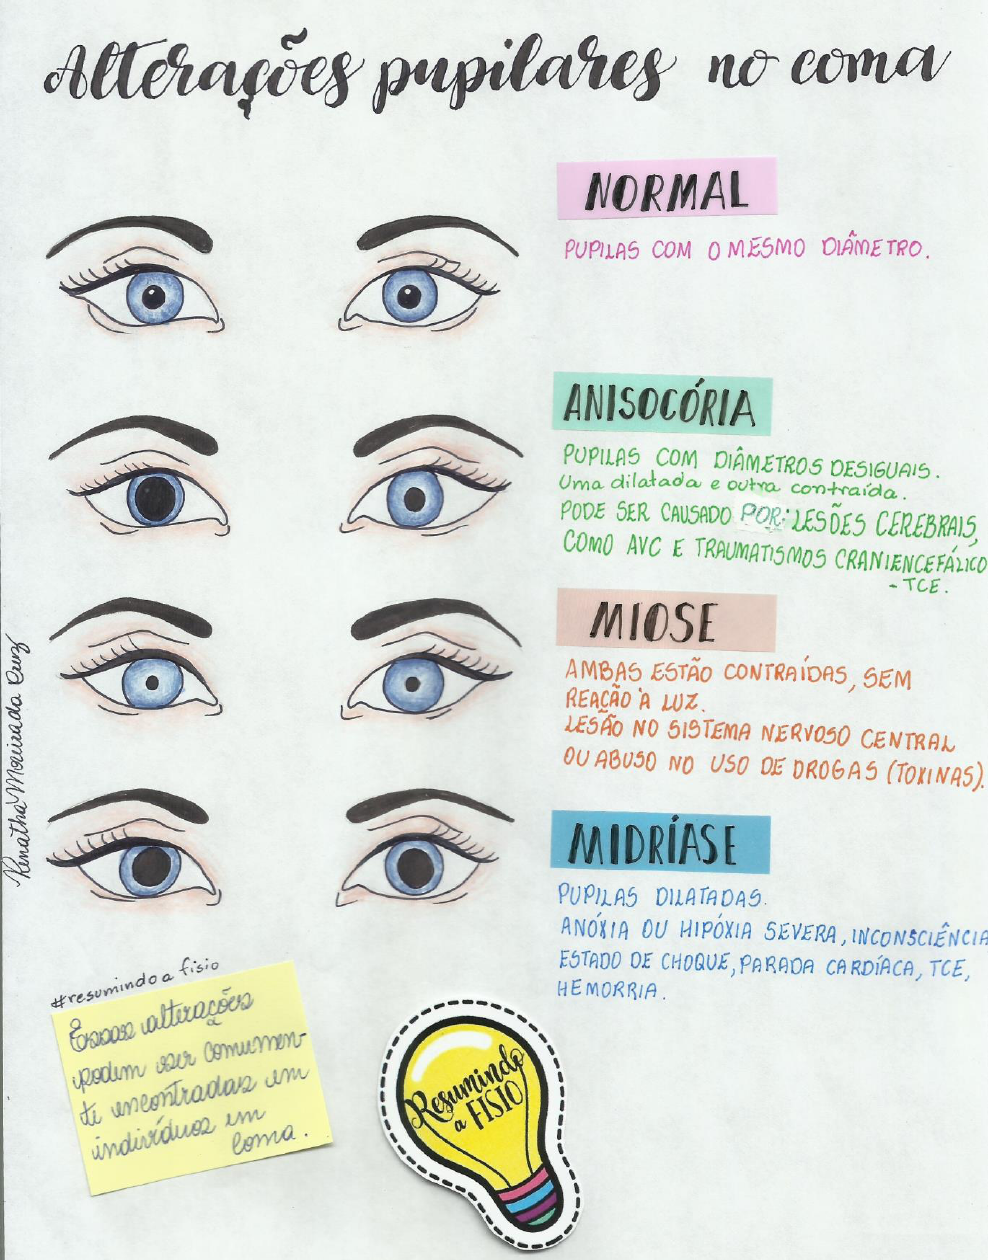 Alterações pupilares no coma
NORMAL
PUPILAS COM O MESMO DIÂMETRO.
ANISOCÓRIA
PUPILAS COM DIÂMETROS DESIGUAIS.
Uma dilatada e outra contraída.
PODE SER CAUSADO POR: LESÕES CEREBRAIS,
COMO AVC E TRAUMATISMOS CRANIENCEFÁLICO
- TCE.
MIOSE
AMBAS ESTÃO CONTRAÍDAS, SEM
REAÇÃO À LUZ.
LESÃO NO SISTEMA NERVOSO CENTRAL
OU ABUSO NO USO DE DROGAS (TOXINAS).
MIDRÍASE
PUPILAS DILATADAS.
ANÓXIA OU HIPÓXIA SEVERA, INCONSCIÊNCIA
ESTADO DE CHOQUE, PARADA CARDÍACA, TCE,
HEMORRIA.
#resumindo a fisio
Essas alterações
podem ser comumen-
te encontradas em
indivíduos em
coma.
Resumindo
a FISIO